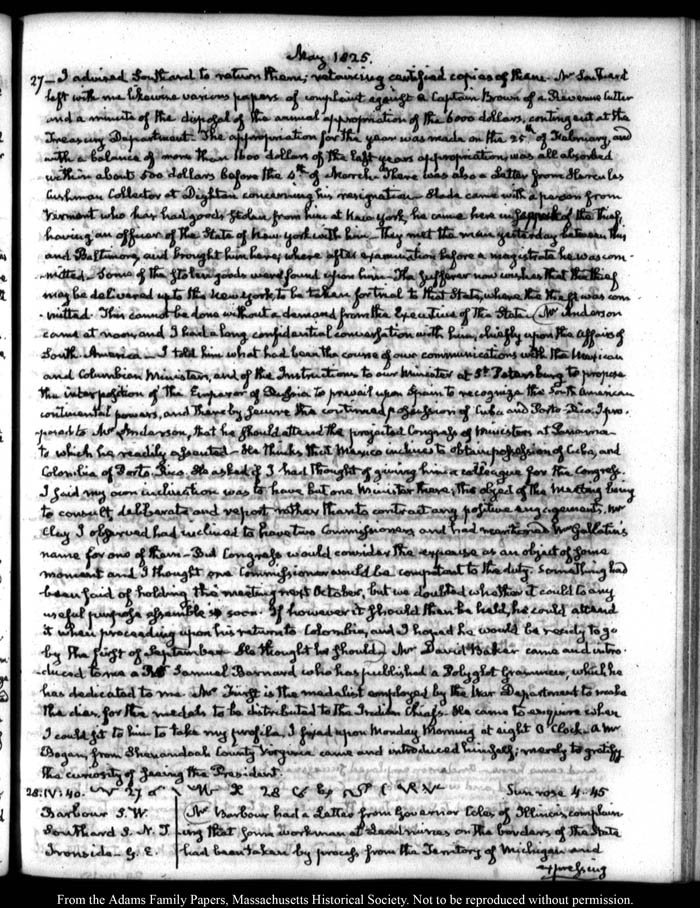 May 1825.
27 — I advised Southard to return them; retaining certified copies of them. Mr Southard
left with me likewise various papers of complaint against a Captain Brown of a Revenue Cutter
and a minute of the disposal of the annual appropriation of the 6000 dollars, contingent at the
Treasury Department. The appropriation for the year was made on the 25th of February, and
with a balance of more than 1600 dollars of the last years appropriation, was all absorbed
within about 500 dollars before the 4th of March. There was also a Letter from Hercules
Cushman Collector at Dighton concerning his resignation. Slade came with a person from
Vermont who has had goods stolen from him at New York, he came here in pursuit of the thief,
having an officer of the State of New York with him. They met the man yesterday between this
and Baltimore, and brought him here; where after examination before a magistrate he was com-
mitted. Some of the stolen goods were found upon him. The sufferer now wishes that the thief
may be delivered up to the New York, to be taken for trial to that State, where the theft was com-
mitted. This cannot be done without a demand from the Executive of the State. Mr Anderson
came at noon, and I had a long confidential conversation with him, chiefly upon the affairs of
South America. I told him what had been the course of our communications with the Mexican
and Columbian Ministers, and of the Instructions to our Minister at St. Petersburg to propose
the interposition of the Emperor of Russia to prevail upon Spain to recognize the South American
continental powers, and thereby secure the continued possession of Cuba and Porto-Rico. I pro-
posed to Mr Anderson, that he should attend the projected Congress of Ministers at Panama
to which he readily assented. He thinks that Mexico inclines to obtain possession of Cuba, and
Colombia of Porto-Rico. He asked if I had thought of giving him a colleague for the Congress.
I said my own inclination was to have but one Minister there, the object of the Meeting being
to consult, deliberate and report rather than to contract any positive engagements. Mr
Clay I observed had inclined to have two Commissioners and had mentioned Mr Gallatin's
name for one of them. But Congress would consider the expense as an object of some
moment and I thought one Commissioner would be competent to the duty. Something had
been said of holding the meeting next October, but we doubted whether it could to any
useful purpose assemble so soon. If however it should then be held, he could attend
it when proceeding upon his return to Colombia, and I hoped he would be ready to go
by the first of September. He thought he should. Mr David Baker came and intro-
duced to me a Mr Samuel Barnard who has published a Polyglot Grammar, which he
has dedicated to me. Mr Furst is the medalist employed by the War Department to make
the dies, for the medals to be distributed to the Indian Chiefs. He came to enquire when
I could sit to him to take my profile. I fixed upon Monday Morning at eight O'Clock. A Mr
Bogan, from Shenandoah County Virginia came and introduced himself; merely to gratify
the curiosity of seeing the President.
28. IV: 40. Sun rose 4.45
Barbour S. W. Mr Barbour had a Letter from Governor Coles of Illinois, complain-
Southard S. N. ing that some workmen at Lead mines on the borders of the State
Ironside G. E. had been taken by process from the Territory of Michigan and
expressing
From the Adams Family Papers, Massachusetts Historical Society. Not to be reproduced without permission.